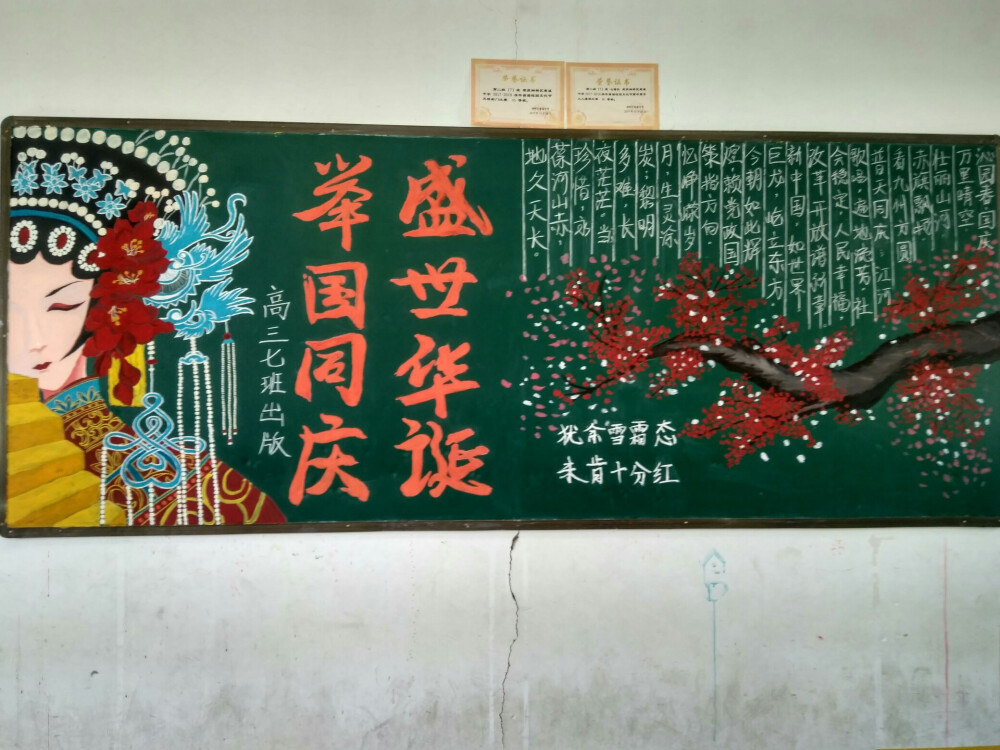 荣誉证书
荣誉证书
盛世华诞
举国同庆
高三七班出版
沁园春国庆
万里晴空
壮丽山河
赤旗飘扬
看九州方圆
普天同庆.江河
歌唱.遍地芳.社
会稳定.人民幸福
改革开放谱新章
新中国.如世界
巨龙.屹立东方
今朝如此辉
煌.赖党政国
策指方向.
忆峥嵘岁
月.生灵涂
炭.黎明
多难.长
夜茫茫.当
珍惜.永
葆河山赤.
地久天长.
犹余雪霜态
未肯十分红